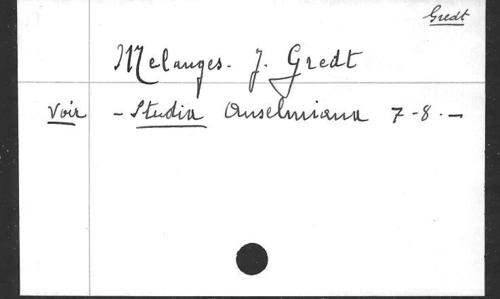 Gredt
Melanges. J. Gredt
Voir - Studia Anselmiana 7-8. -